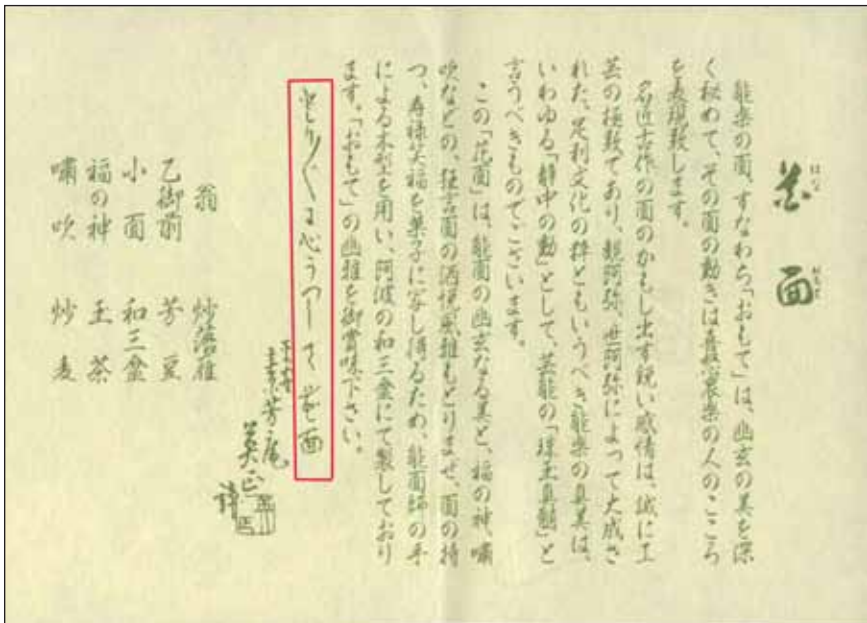 花面
はな
おもて
能楽の面、すなわち「おもて」は、幽玄の美を深
く秘めて、その面の動きは喜怒哀楽の人のこころ
を表現致します。
名匠古作の面のかもし出す鋭い感情は、誠に工
芸の極致であり、観阿弥、世阿弥によって大成さ
れた、足利文化の粋ともいうべき能楽の真美は、
いわゆる「静中の動」として、芸能の「珠玉真髄」と
言うべきものでございます。
この「花面」は、能面の幽玄なる美と、福の神、嘯
吹などの、狂言面の洒悦風雅もとりまぜ、面の持
つ、寿禄笑福を菓子に写し得るため、能面師の手
による木型を用い、阿波の和三盆にて製しており
ます。「おもて」の幽雅を御賞味下さい。
とり〴〵に心うつして花面
素芳庵
美正
翁 炒落雁
乙御前 芳豆
小面 和三盆
福の神 玉茶
嘯吹 炒麦